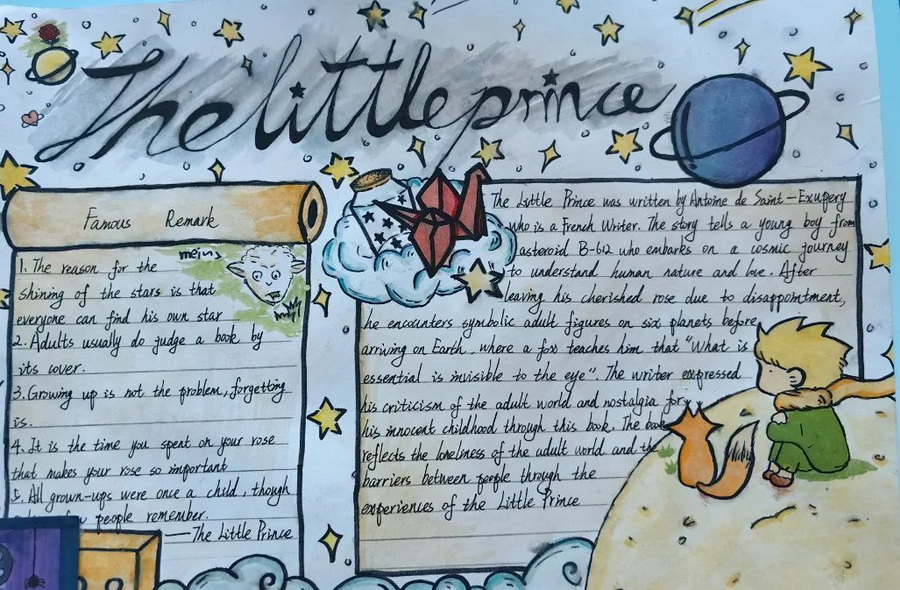 The little prince
Famous Remark
mein
1. The reason for the
shining of the stars is that
everyone can find his own star
2. Adults usually do judge a book by
its cover.
3. Growing up is not the problem, forgetting
is.
4. It is the time you spent on your rose
that makes your rose so important
5. All grown-ups were once a child, though
few people remember.
—The Little Prince
The Little Prince was written by Antoine de Saint-Exupery
who is a French Writer. The story tells a young boy from
asteroid B-612 who embarks on a cosmic journey
to understand human nature and love. After
leaving his cherished rose due to disappointment,
he encounters symbolic adult figures on six planets before
arriving on Earth, where a fox teaches him that "What is
essential is invisible to the eye". The writer expressed
his criticism of the adult world and nostalgia for
his innocent childhood through this book. The book
reflects the loneliness of the adult world and the
barriers between people through the
experiences of the Little Prince